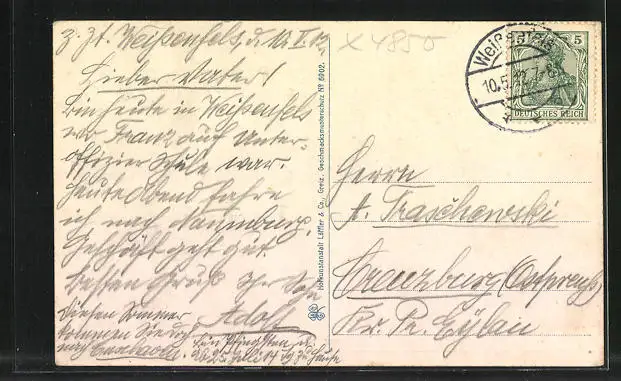 z. Zt. Weißenfels, d. 10. V. 12.
Lieber Vater!
Bin heute in Weißenfels
wo Franz auf Unter-
offizier Schule war.
Heute Abend fahre
ich nach Naumburg.
Geschäft geht gut.
Besten Gruß Ihr Sohn
Adolf
Diesen Sommer
kommen Sie doch
nach
Hofkunstanstalt Löffler & Co., Greiz. Geschmacksmusterschutz No 6902.
X 4850
Weißenfels
10.5.12. 7-8
5 5
DEUTSCHES REICH
Herrn
A. Traschewski
Creuzburg (Ostpreuß)
Kr. Pr. Eylau